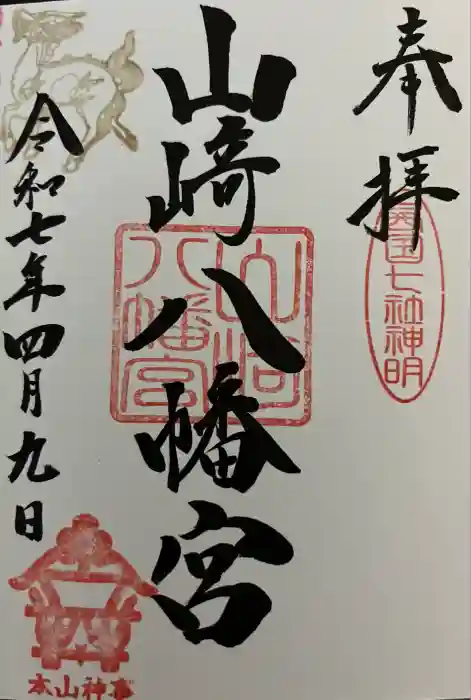 奉拝
興国七社神明
山崎八幡宮
山崎
八幡宮
令和七年四月九日
本山神事